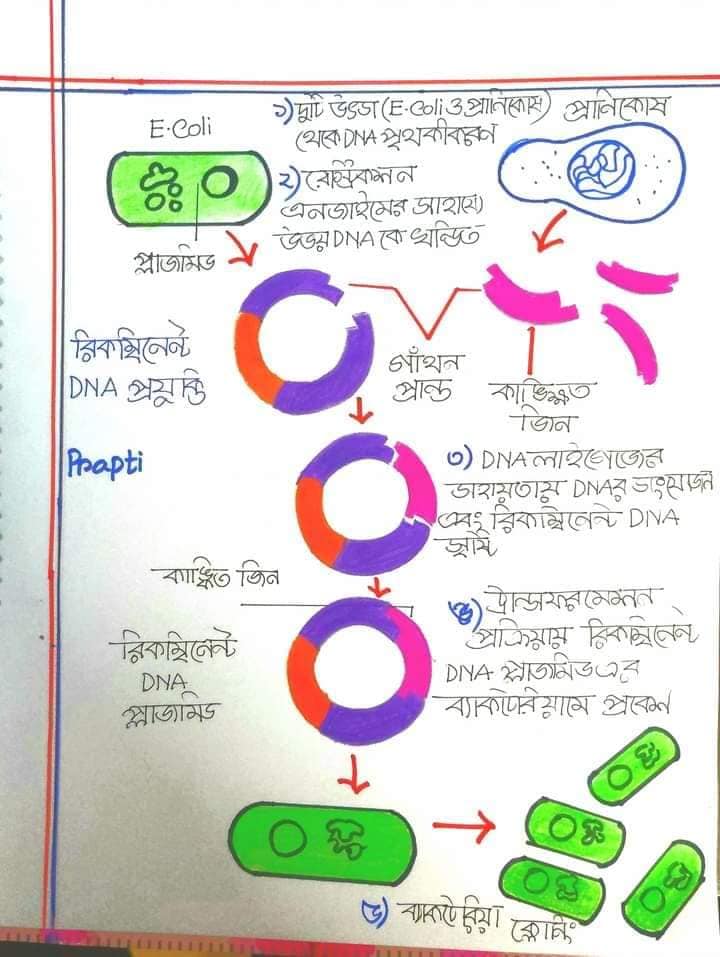 E·Coli
১) দুটি উৎস (E·Coli ও প্রানিকোষ)
থেকে DNA পৃথকীকরণ
প্রানিকোষ
২) রেস্ট্রিকশন
এনজাইমের সাহায্যে
উভয় DNA কে খন্ডিত
প্লাজমিড
রিকম্বিনেন্ট
DNA প্রযুক্তি
গাঁথন
প্রান্ত
কাঙ্ক্ষিত
জিন
Prapti
৩) DNA লাইগেজের
সহায়তায় DNAর সংযোজন
এবং রিকম্বিনেন্ট DNA
সৃষ্টি
কাঙ্খিত জিন
ট্রান্সফরমেশন
প্রক্রিয়ায় রিকম্বিনেন্ট
DNA প্লাজমিড এর
ব্যাকটেরিয়ামে প্রবেশ
রিকম্বিনেন্ট
DNA
প্লাজমিড
ব্যাকটেরিয়া ক্লোনিং